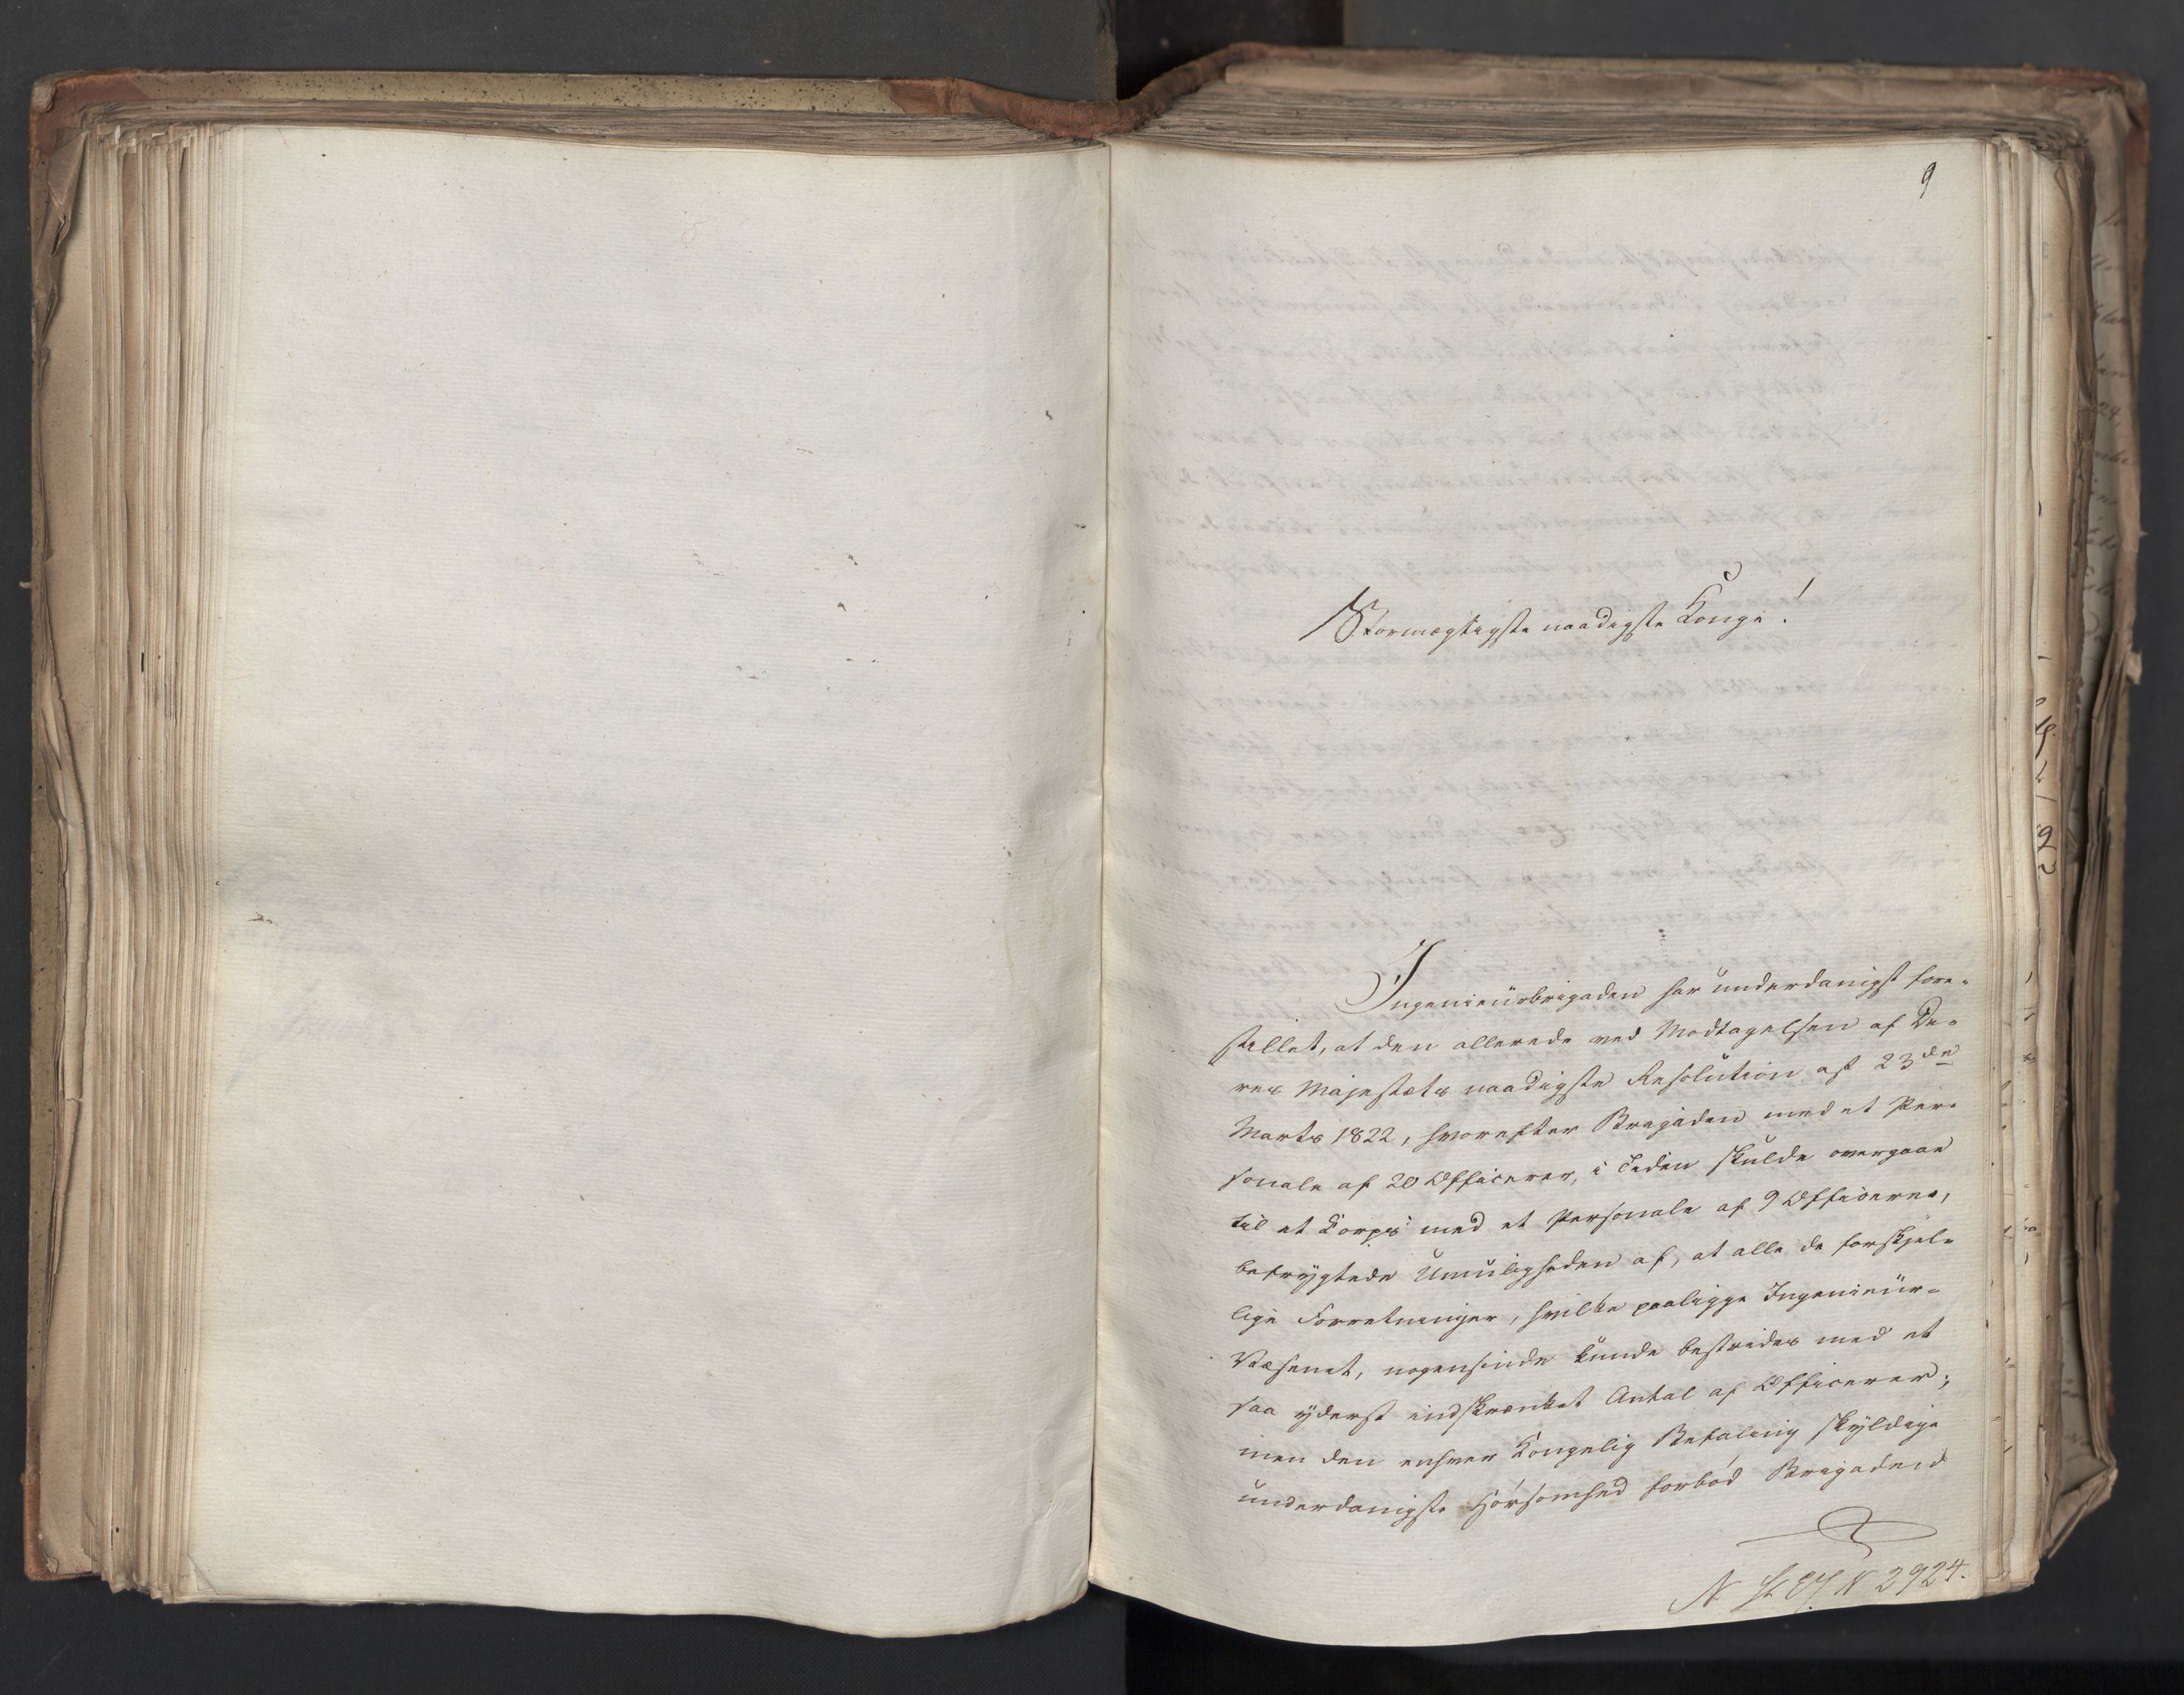 9
Stormægtigste naadigste Konge!
Ingenieurbrigaden har underdanigst fore-
stillet, at den allerede ved Modtagelsen af De-
res Majestæts naadigste Resolution af 23de
Marts 1822, hvorefter Brigaden med et Per-
sonale af 20 Officerer, i Tiden skulde overgaae
til et Corps med et Personale af 9 Officerer,
befrygtede Umuligheden af, at alle de forskjel-
lige Forretninger, hvilke paaligge Ingenieur-
Væsenet, nogensinde kunde bestrides med et
saa yderst indskrænket Antal af Officerer;
men den enhver Kongelig Befaling skyldige
underdanigste Hörsomhed forböd Brigaden
N 2924.